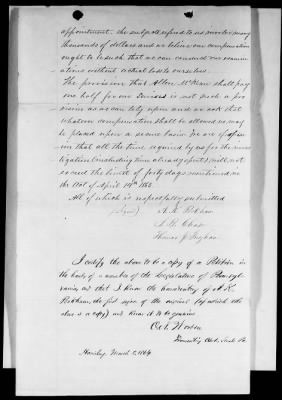 appointment. the subject referred to us involves many
thousands of dollars and we believe our compensation
ought to be such that we can conduct our exami
nations without actual loss to ourselves.
The provision that Allen McKean shall pay
one half for our services is not such a pro
vision as we can rely upon and we ask that
whatever compensation shall be allowed us, may
be placed upon a secure basis. We are of opin
ion that all the time required by us for the inves
tigation (including time already spent) will not
exceed the limit of forty days mentioned in
the Act of April 14th 1863.
All of which is respectfully submitted
(Signed) A. K.
L. B.
Thomas J. Ingham
I certify the above to be a copy of a Petition in
the hands of a member of the Legislature of Pennsyl
vania, and that I know the handwriting of A K
the first signer of the original (of which the
above is a copy) and know it to be genuine
March 2, 1864